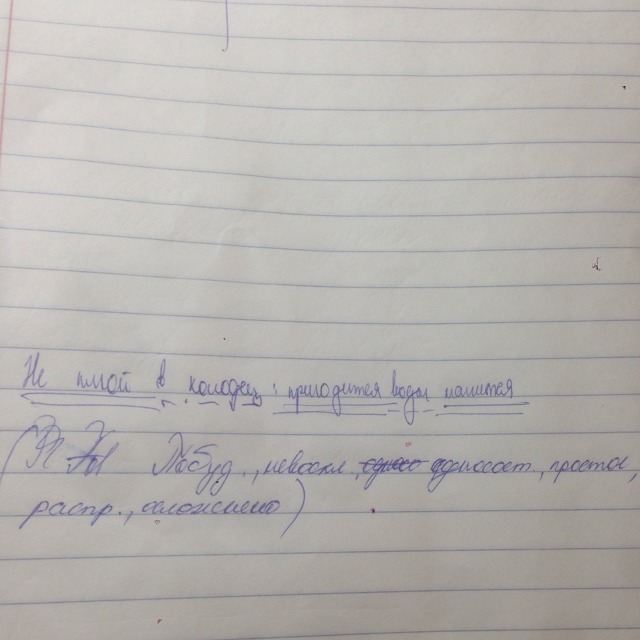 Не плюй в колодец : пригодится воды напится
( Побуд., невоскл, одно односост, простое,
распр., осложнено)